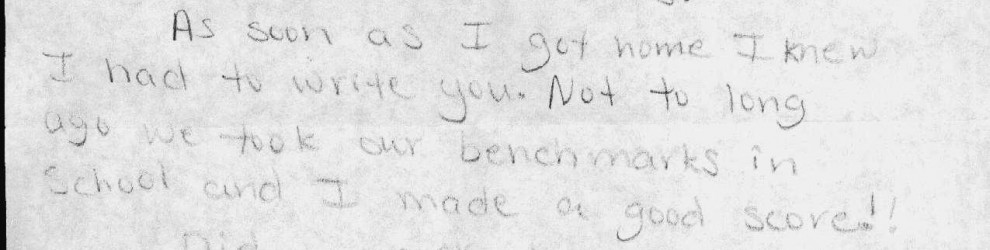 As soon as I got home I knew
I had to write you. Not to long
ago we took our benchmarks in
School and I made a good score!!
Did